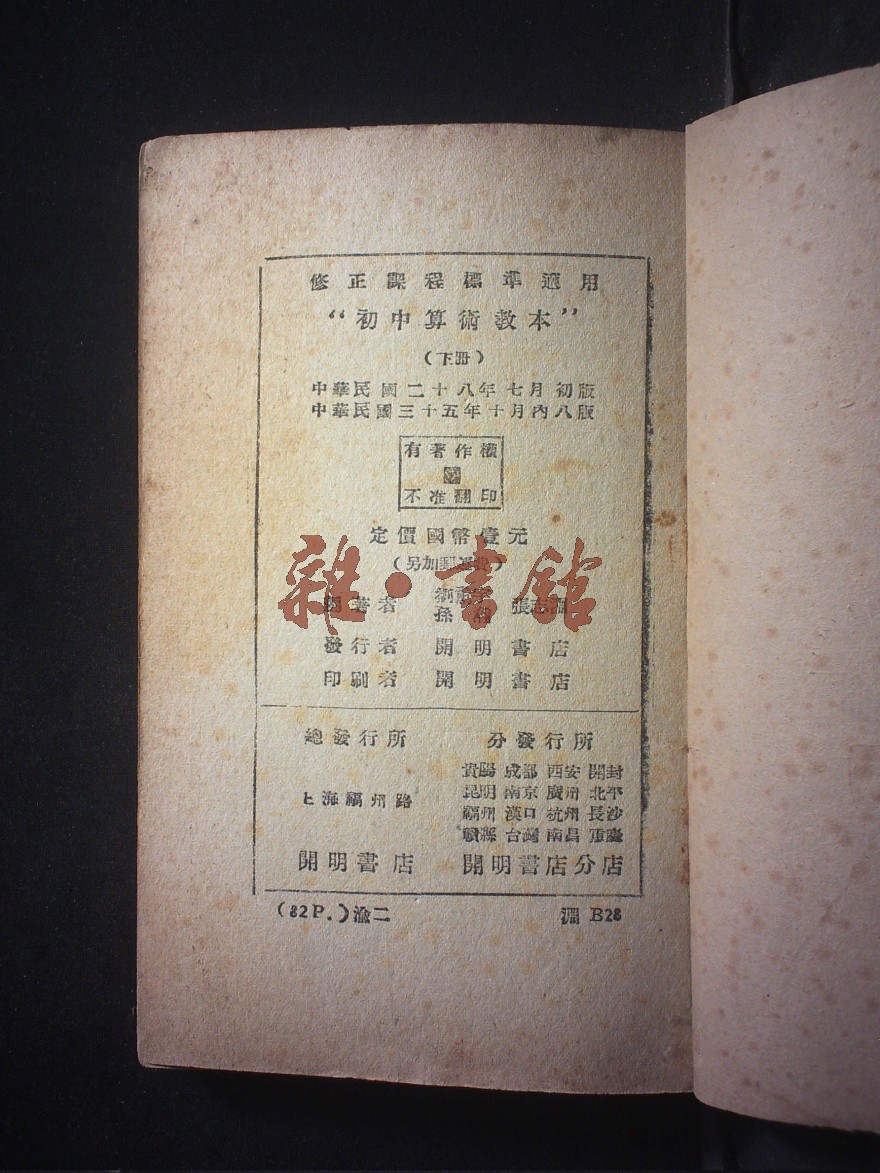 修正課程標準適用
“初中算術敎本”
（下册）
中華民國二十八年七月初版
中華民國三十五年十月內八版
有著作權
不准翻印
定價國幣壹元
（另加郵運費）
著者
劉
孫
張志淵
發行者 開明書店
印刷者 開明書店
雜·書館
總發行所
上海福州路
開明書店
分發行所
貴陽 成都 西安 開封
昆明 南京 廣州 北平
福州 漢口 杭州 長沙
贛縣 台灣 南昌 重慶
開明書店分店
(82P.)渝二
淵 B28